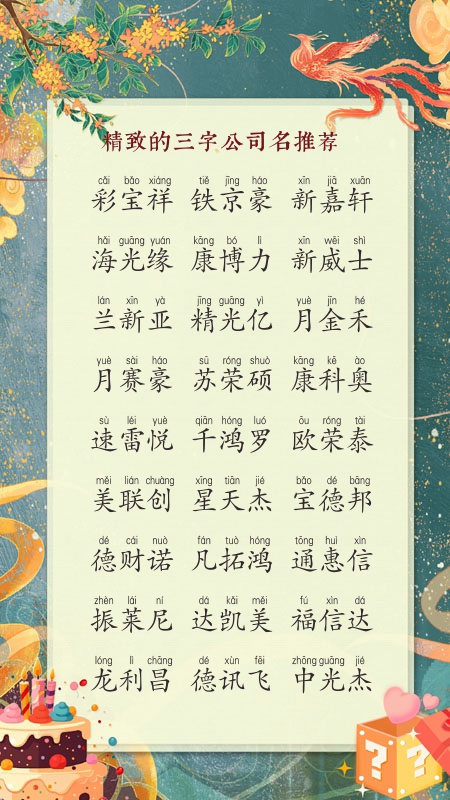 精致的三字公司名推荐
cǎi bǎo xiáng tiě jīng háo xīn jiā xuān
彩宝祥 铁京豪 新嘉轩
hǎi guāng yuán kāng bó lì xīn wēi shì
海光缘 康博力 新威士
lán xīn yà jīng guāng yì yuè jīn hé
兰新亚 精光亿 月金禾
yuè sài háo sū róng shuò kāng kē ào
月赛豪 苏荣硕 康科奥
sù léi yuè qiān hóng luó ōu róng tài
速雷悦 千鸿罗 欧荣泰
měi lián chuàng xīng tiān jié bǎo dé bāng
美联创 星天杰 宝德邦
dé cái nuò fán tuò hóng tōng huì xìn
德财诺 凡拓鸿 通惠信
zhèn lái ní dá kǎi měi fú xìn dá
振莱尼 达凯美 福信达
lóng lì chāng dé xùn fēi zhōng guāng jié
龙利昌 德讯飞 中光杰
? ?